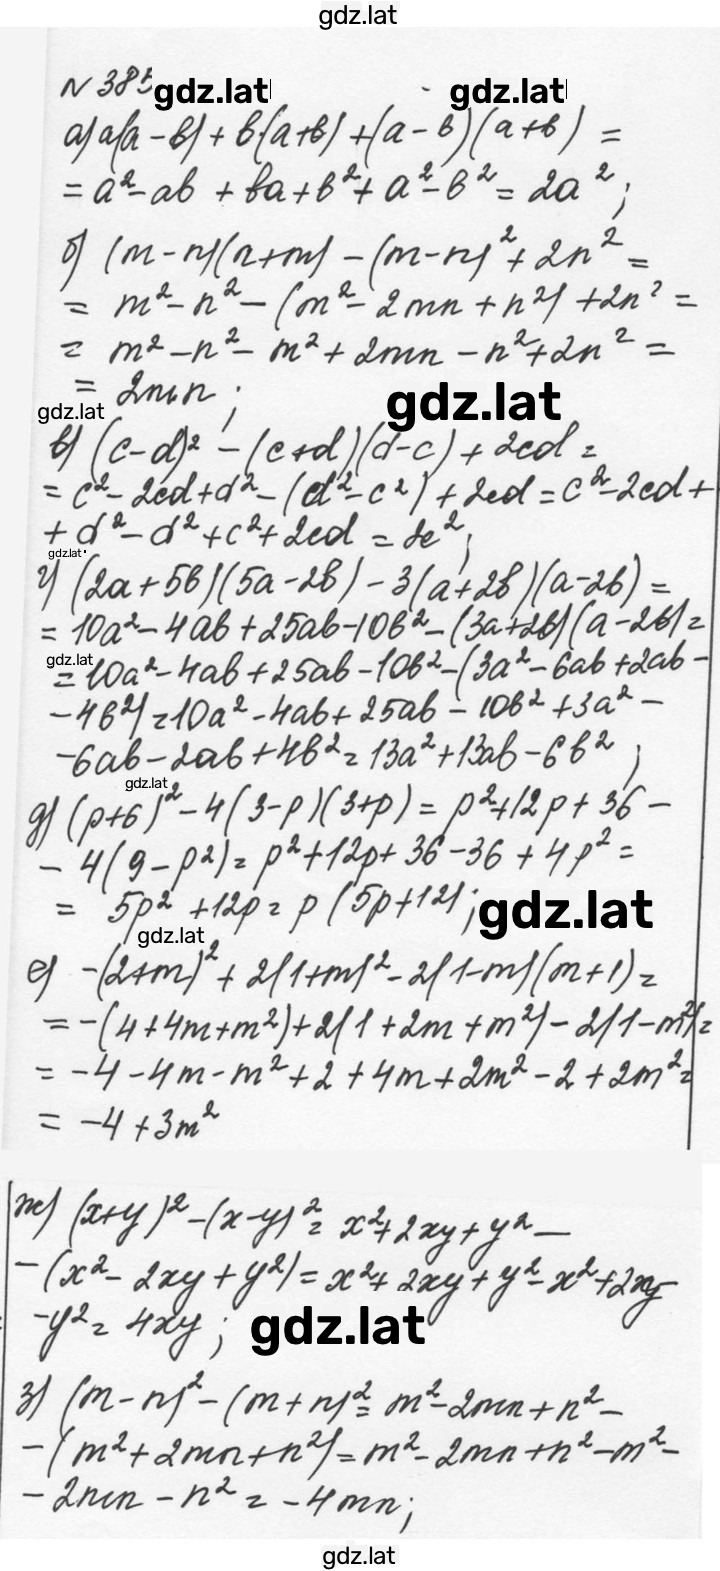 gdz.lat
№ 385
gdz.lat gdz.lat
а) a(a - b) + b(a+b) + (a - b)(a+b) =
= a² - ab + ba + b² + a² - b² = 2a²;
б) (m - n)(n+m) - (m-n)² + 2n² =
= m² - n² - (m² - 2mn + n²) + 2n² =
= m² - n² - m² + 2mn - n² + 2n² =
= 2mn;
gdz.lat gdz.lat
в) (c-d)² - (c+d)(d-c) + 2cd =
= c² - 2cd + d² - (d² - c²) + 2cd = c² - 2cd +
+ d² - d² + c² + 2cd = 2c²;
gdz.lat
г) (2a + 5b)(5a - 2b) - 3(a+2b)(a-2b) =
= 10a² - 4ab + 25ab - 10b² - (3a+2b)(a-2b) =
gdz.lat
= 10a² - 4ab + 25ab - 10b² - (3a² - 6ab + 2ab -
- 4b²) = 10a² - 4ab + 25ab - 10b² + 3a² -
- 6ab - 2ab + 4b² = 13a² + 13ab - 6b²;
gdz.lat
д) (p+6)² - 4(3-p)(3+p) = p² + 12p + 36 -
- 4(9 - p²) = p² + 12p + 36 - 36 + 4p² =
= 5p² + 12p = p(5p+12);
gdz.lat
gdz.lat
е) -(2+m)² + 2(1+m)² - 2(1-m)(m+1) =
= -(4+4m+m²) + 2(1+2m+m²) - 2(1-m²) =
= -4 - 4m - m² + 2 + 4m + 2m² - 2 + 2m² =
= -4 + 3m²
ж) (x+y)² - (x-y)² = x² + 2xy + y² -
- (x² - 2xy + y²) = x² + 2xy + y² - x² + 2xy -
- y² = 4xy;
gdz.lat
з) (m - n)² - (m + n)² = m² - 2mn + n² -
- (m² + 2mn + n²) = m² - 2mn + n² - m² -
- 2mn - n² = -4mn;
gdz.lat